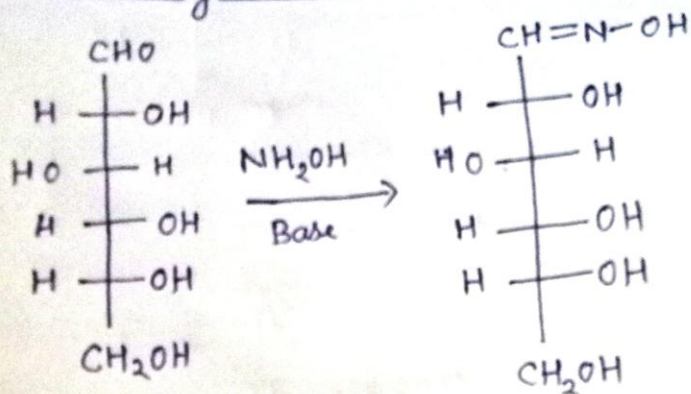 CHO
H OH
HO H
H OH
H OH
CH₂OH
NH₂OH
Base
CH=N-OH
H OH
HO H
H OH
H OH
CH₂OH